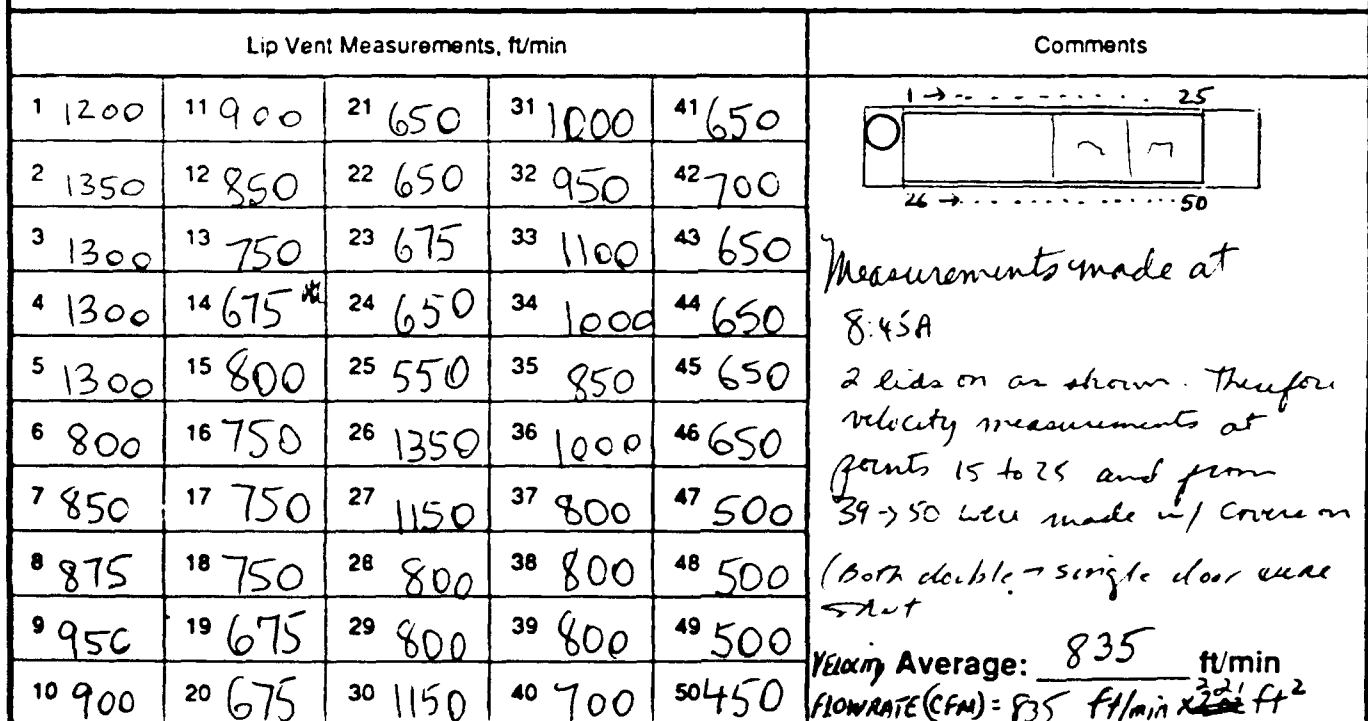 Lip Vent Measurements, ft/min Comments
1 1200 11 900 21 650 31 1000 41 650
2 1350 12 850 22 650 32 950 42 700
3 1300 13 750 23 675 33 1100 43 650
4 1300 14 675 24 650 34 1000 44 650
5 1300 15 800 25 550 35 850 45 650
6 800 16 750 26 1350 36 1000 46 650
7 850 17 750 27 1150 37 800 47 500
8 875 18 750 28 800 38 800 48 500
9 950 19 675 29 800 39 800 49 500
10 900 20 675 30 1150 40 700 50 450
1 → 25
26 → 50
Measurements made at
8:45A
2 lids on as shown. Therefore
velocity measurements at
points 15 to 25 and from
39→50 were made w/ covers on
(Both double → single door were
shut
Velocity Average: 835 ft/min
FLOWRATE (CFM) = 835 ft/min x ft²